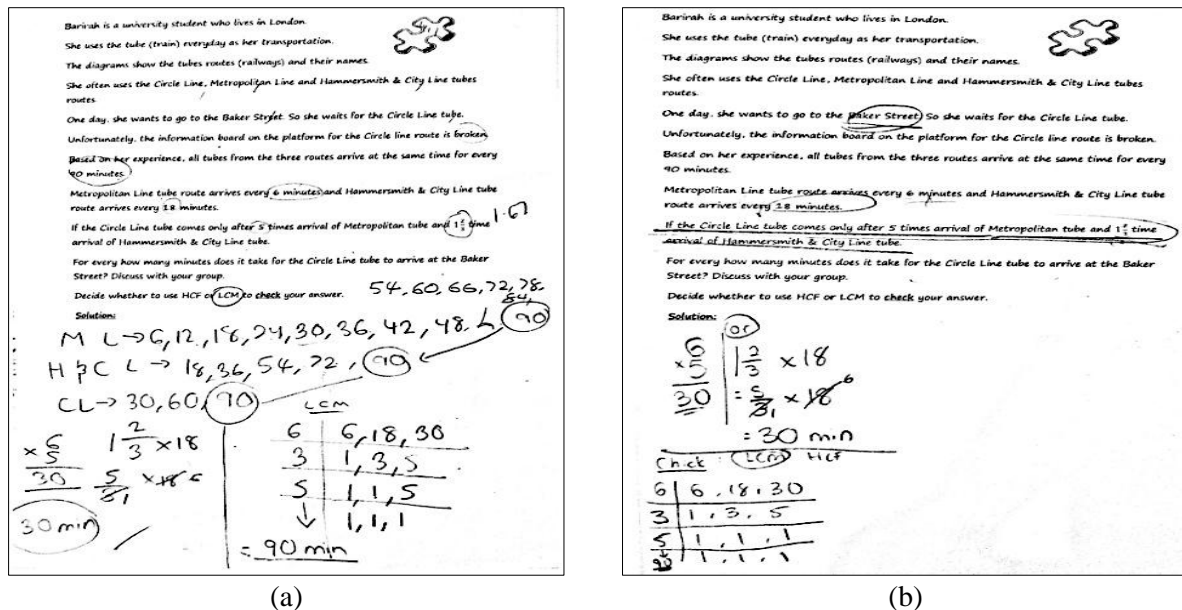 Barirah is a university student who lives in London.
She uses the tube (train) everyday as her transportation.
The diagrams show the tubes routes (railways) and their names.
She often uses the Circle Line, Metropolitan Line and Hammersmith & City Line tubes
routes.
One day, she wants to go to the Baker Street. So she waits for the Circle Line tube.
Unfortunately, the information board on the platform for the Circle line route is broken.
Based on her experience, all tubes from the three routes arrive at the same time for every
90 minutes.
Metropolitan Line tube route arrives every 6 minutes and Hammersmith & City Line tube
route arrives every 18 minutes.
1.67
If the Circle Line tube comes only after 5 times arrival of Metropolitan tube and 1 2/3 time
arrival of Hammersmith & City Line tube.
For every how many minutes does it take for the Circle Line tube to arrive at the Baker
Street? Discuss with your group.
Decide whether to use HCF or LCM to check your answer.
54, 60, 66, 72, 78,
84,
Solution:
M L → 6, 12, 18, 24, 30, 36, 42, 48, 90
H & C L → 18, 36, 54, 72, 90
CL → 30, 60, 90
6
× 5
30
1 2/3 × 18
5/3 1 × 18 6
30 min
LCM
6 6, 18, 30
3 1, 3, 5
5 1, 1, 5
↓ 1, 1, 1
= 90 min
(a)
Barirah is a university student who lives in London.
She uses the tube (train) everyday as her transportation.
The diagrams show the tubes routes (railways) and their names.
She often uses the Circle Line, Metropolitan Line and Hammersmith & City Line tubes
routes.
One day, she wants to go to the Baker Street. So she waits for the Circle Line tube.
Unfortunately, the information board on the platform for the Circle line route is broken.
Based on her experience, all tubes from the three routes arrive at the same time for every
90 minutes.
Metropolitan Line tube route arrives every 6 minutes and Hammersmith & City Line tube
route arrives every 18 minutes.
If the Circle Line tube comes only after 5 times arrival of Metropolitan tube and 1 2/3 time
arrival of Hammersmith & City Line tube.
For every how many minutes does it take for the Circle Line tube to arrive at the Baker
Street? Discuss with your group.
Decide whether to use HCF or LCM to check your answer.
Solution:
or
6
× 5
30
1 2/3 × 18
= 5/3 1 × 18 6
= 30 min
Check : LCM HCF
6 6, 18, 30
3 1, 3, 5
5 1, 1, 1
1, 1, 1
(b)